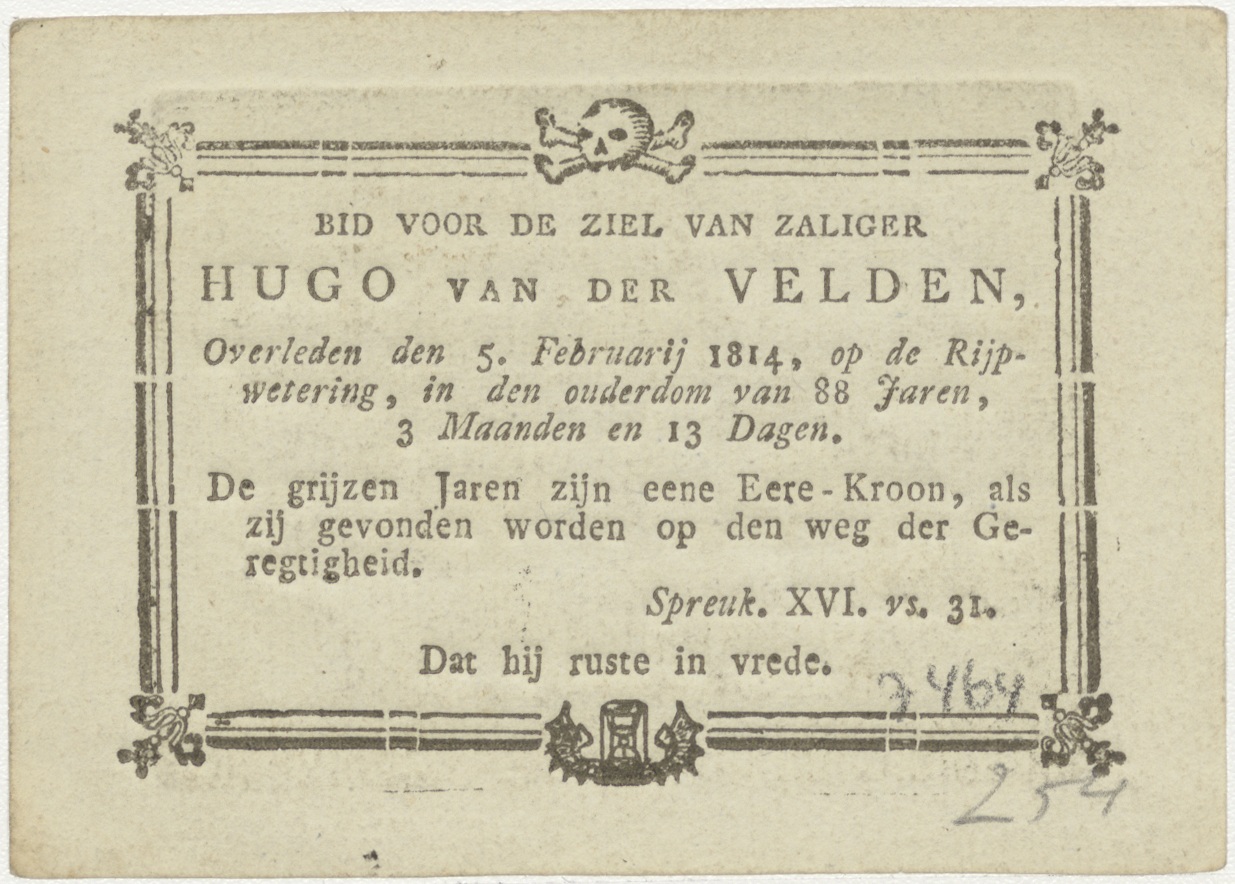 BID VOOR DE ZIEL VAN ZALIGER
HUGO VAN DER VELDEN,
Overleden den 5. Februarij 1814, op de Rijp-
wetering, in den ouderdom van 88 Jaren,
3 Maanden en 13 Dagen.
De grijzen Jaren zijn eene Eere-Kroon, als
zij gevonden worden op den weg der Ge-
regtigheid.
Spreuk. XVI. vs. 31.
Dat hij ruste in vrede.
7464
254